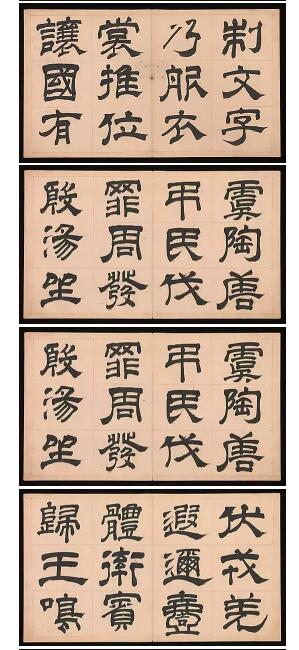 制文字
乃服衣
裳推位
讓國有
虞陶唐
弔民伐
罪周發
殷湯坐
虞陶唐
弔民伐
罪周發
殷湯坐
伏戎羌
遐邇壹
體率賓
歸王鳴